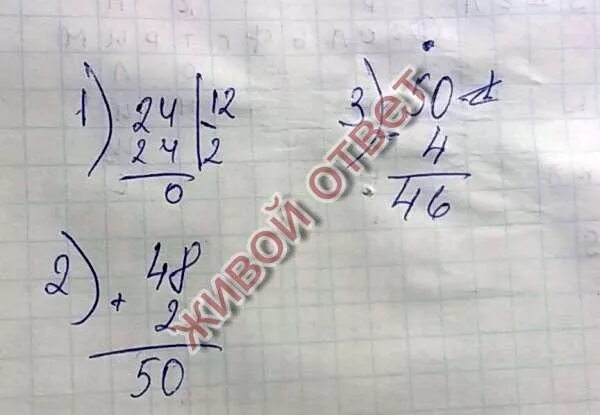 1) 24 | 12
24 | 2
0
2) 48
+ 2
50
3) 50
- 4
46
ЖИВОЙ ОТВЕТ